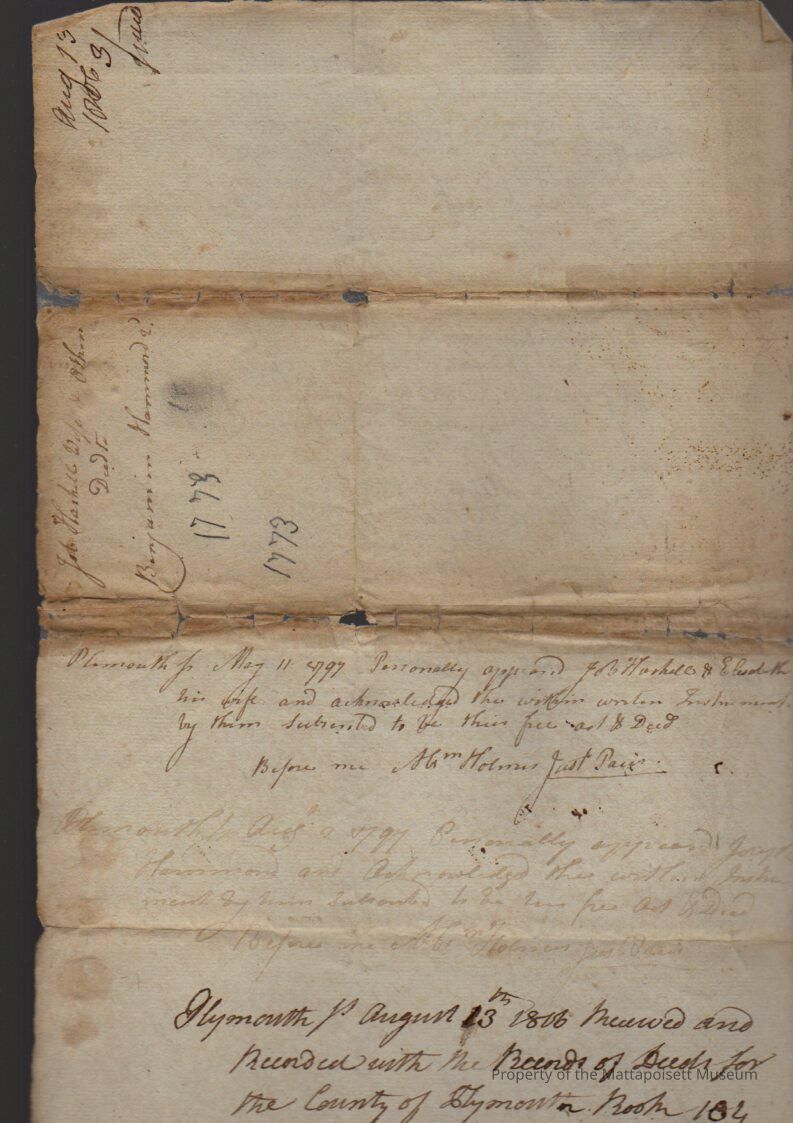 Aug 13
1806 31
Job Haskell Wife & Others
Deed to
Benjamin Hammond 2d
1773
1773
Plimouth ss May 11 1797 Personally appeared Job Haskell & Elisabeth
his wife and acknowledged the within writen Instrument
by them Subscribed to be their free act & Deed
Before me Abrm Holmes Just Pacis
Plimouth ss Augt 2 1797 Personally appeared Joseph
Hammond and Acknowledged the within Instru
ment by him Subscribed to be his free Act & Deed
Before me Abrm Holmes Just Pacis
Plymouth ss August 13th 1806 Received and
Recorded with the Records of Deeds for
the County of Plymouth Book 104
Property of the Mattapoisett Museum